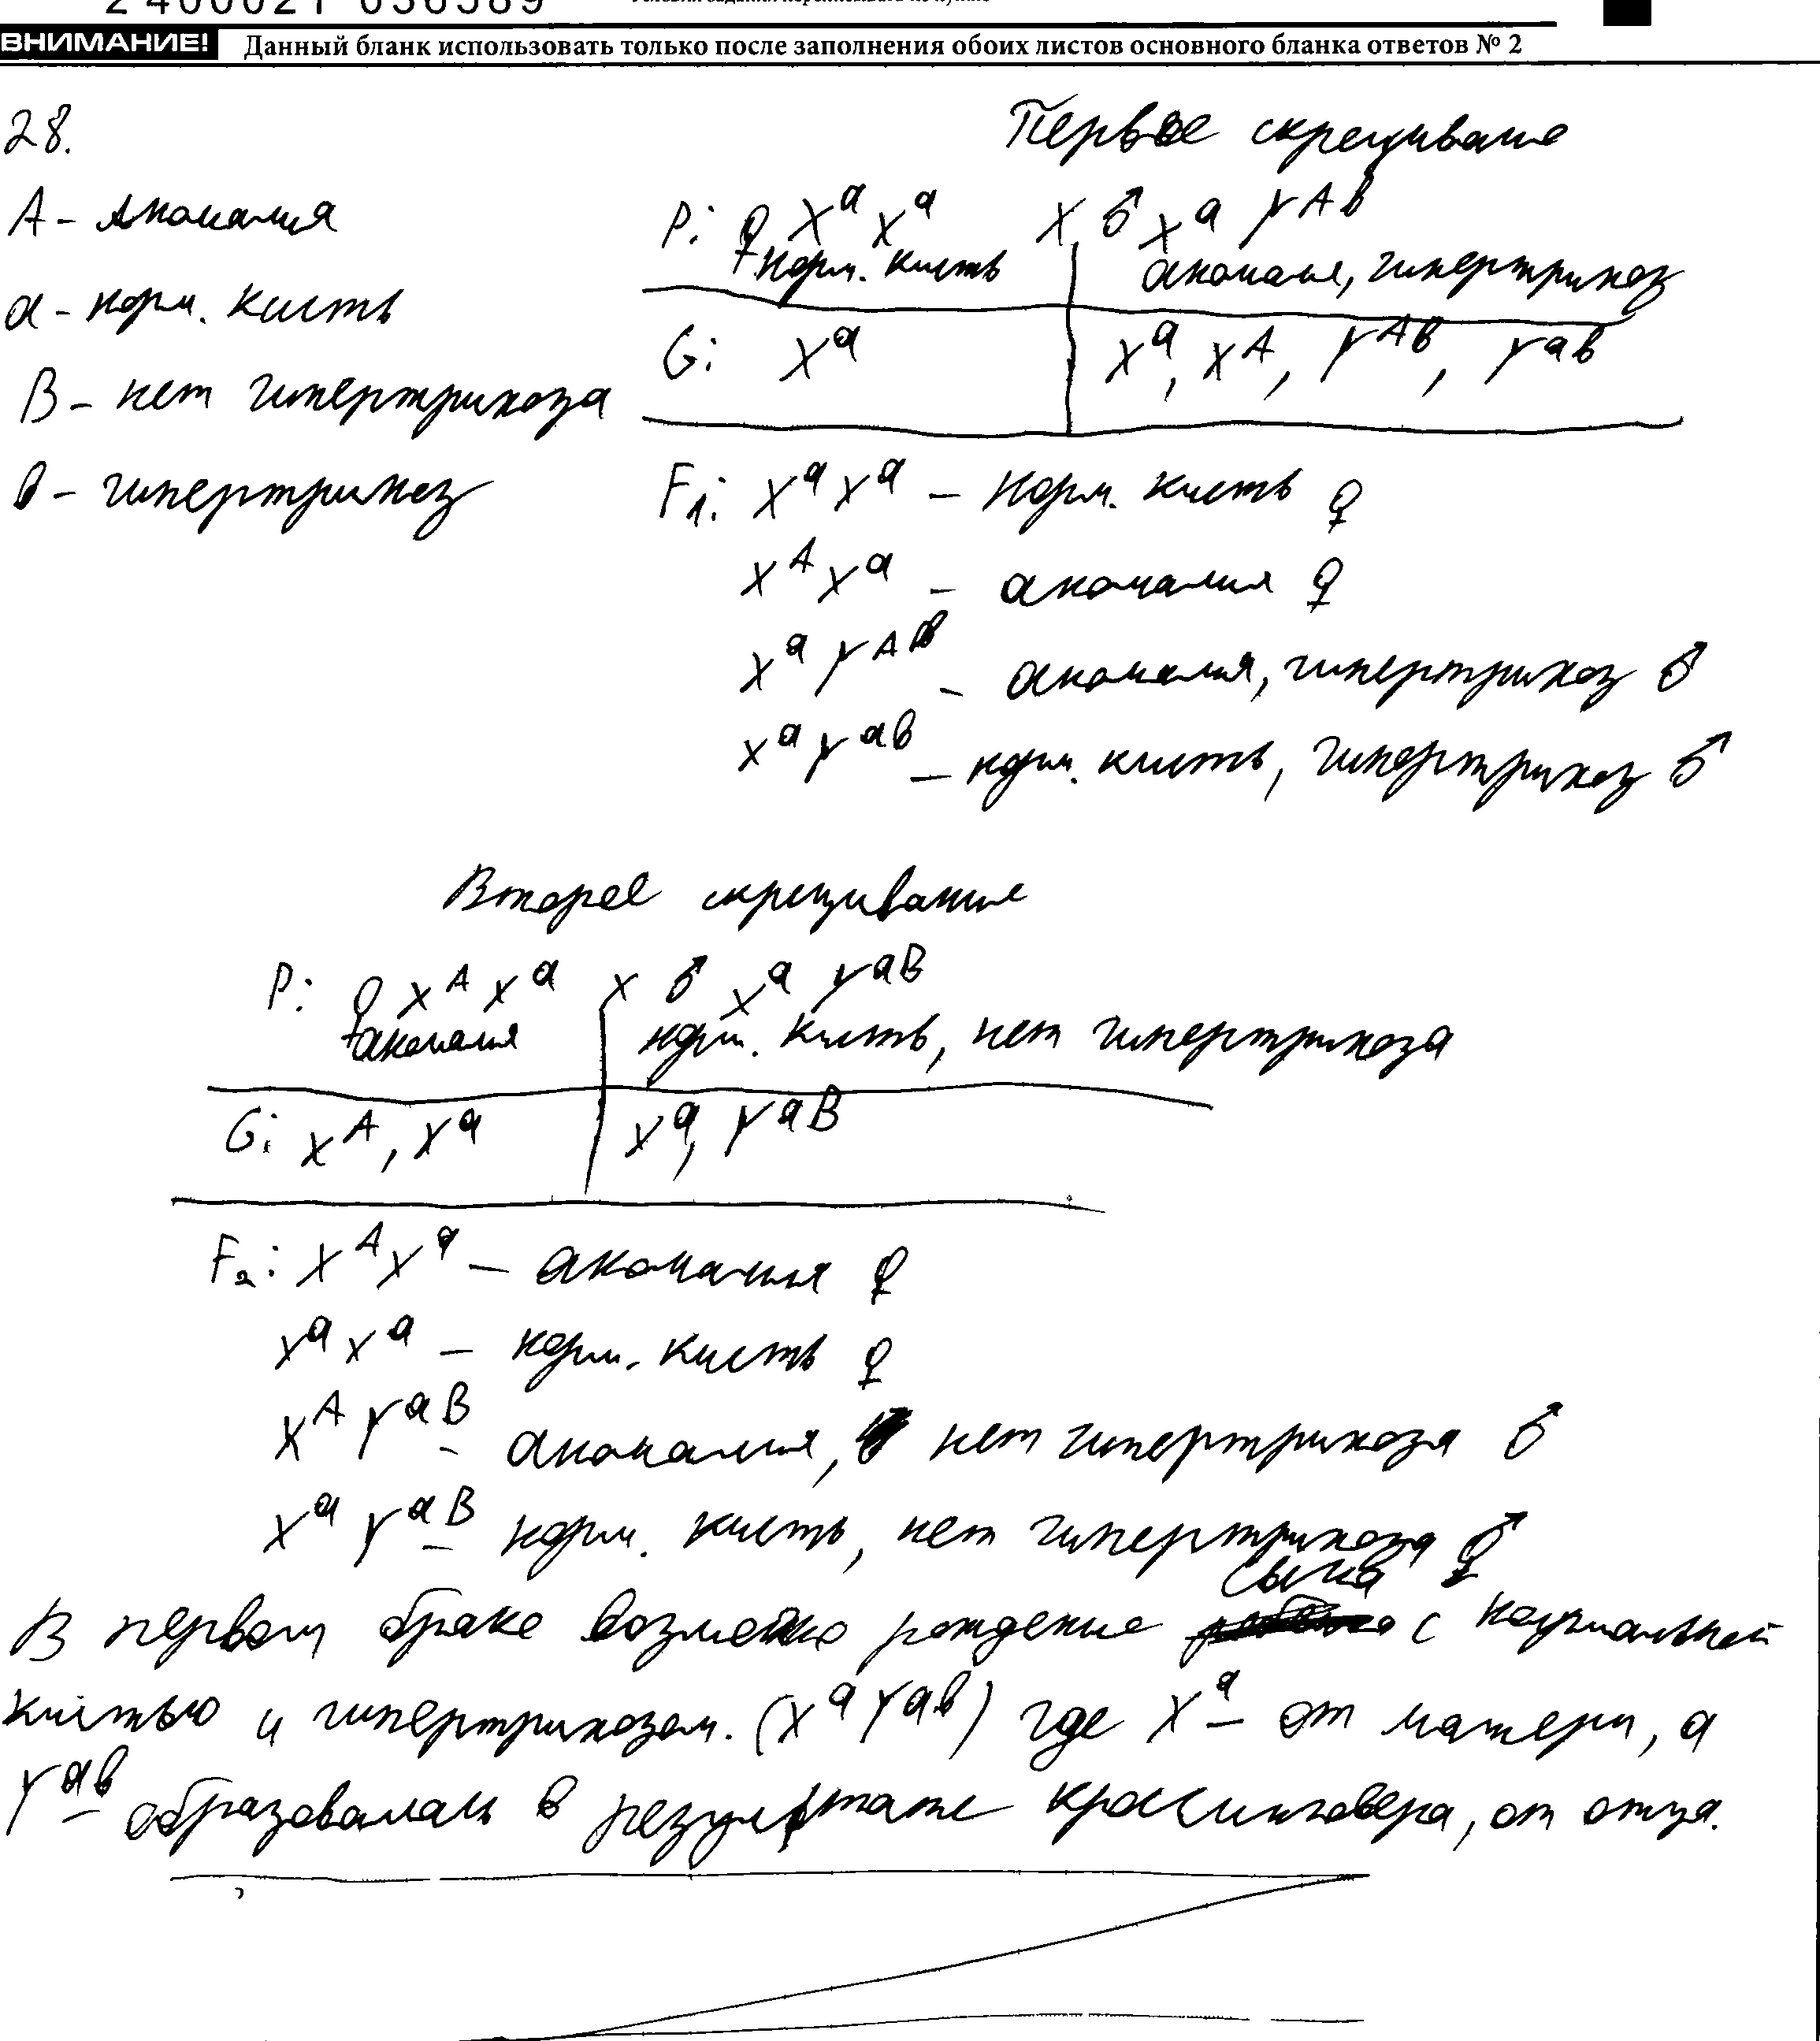 2400021 036389
ВНИМАНИЕ! Данный бланк использовать только после заполнения обоих листов основного бланка ответов № 2
28.
A - аномалия
a - норм. кисть
B - нет гипертрихоза
в - гипертрихоз
Первое скрещивание
P: ♀ Xᵃ Xᵃ X ♂ Xᵃ Yᴬᵇ
норм. кисть аномалия, гипертрихоз
G: Xᵃ Xᵃ, Xᴬ, Yᴬᵇ, Yᵃᵇ
F₁: Xᵃ Xᵃ - норм. кисть ♀
Xᴬ Xᵃ - аномалия ♀
Xᵃ Yᴬᵇ - аномалия, гипертрихоз ♂
Xᵃ Yᵃᵇ - норм. кисть, гипертрихоз ♂
Второе скрещивание
P: ♀ Xᴬ Xᵃ x ♂ Xᵃ Yᵃᴮ
аномалия норм. кисть, нет гипертрихоза
G: Xᴬ, Xᵃ Xᵃ, Yᵃᴮ
F₂: Xᴬ Xᵃ - аномалия ♀
Xᵃ Xᵃ - норм. кисть ♀
Xᴬ Yᵃᴮ - аномалия, нет гипертрихоза ♂
Xᵃ Yᵃᴮ - норм. кисть, нет гипертрихоза ♂
В первом браке возможно рождение сына с нормальной
кистью и гипертрихозом. (Xᵃ Yᵃᵇ) где Xᵃ - от матери, а
Yᵃᵇ - образовалась в результате кроссинговера, от отца.